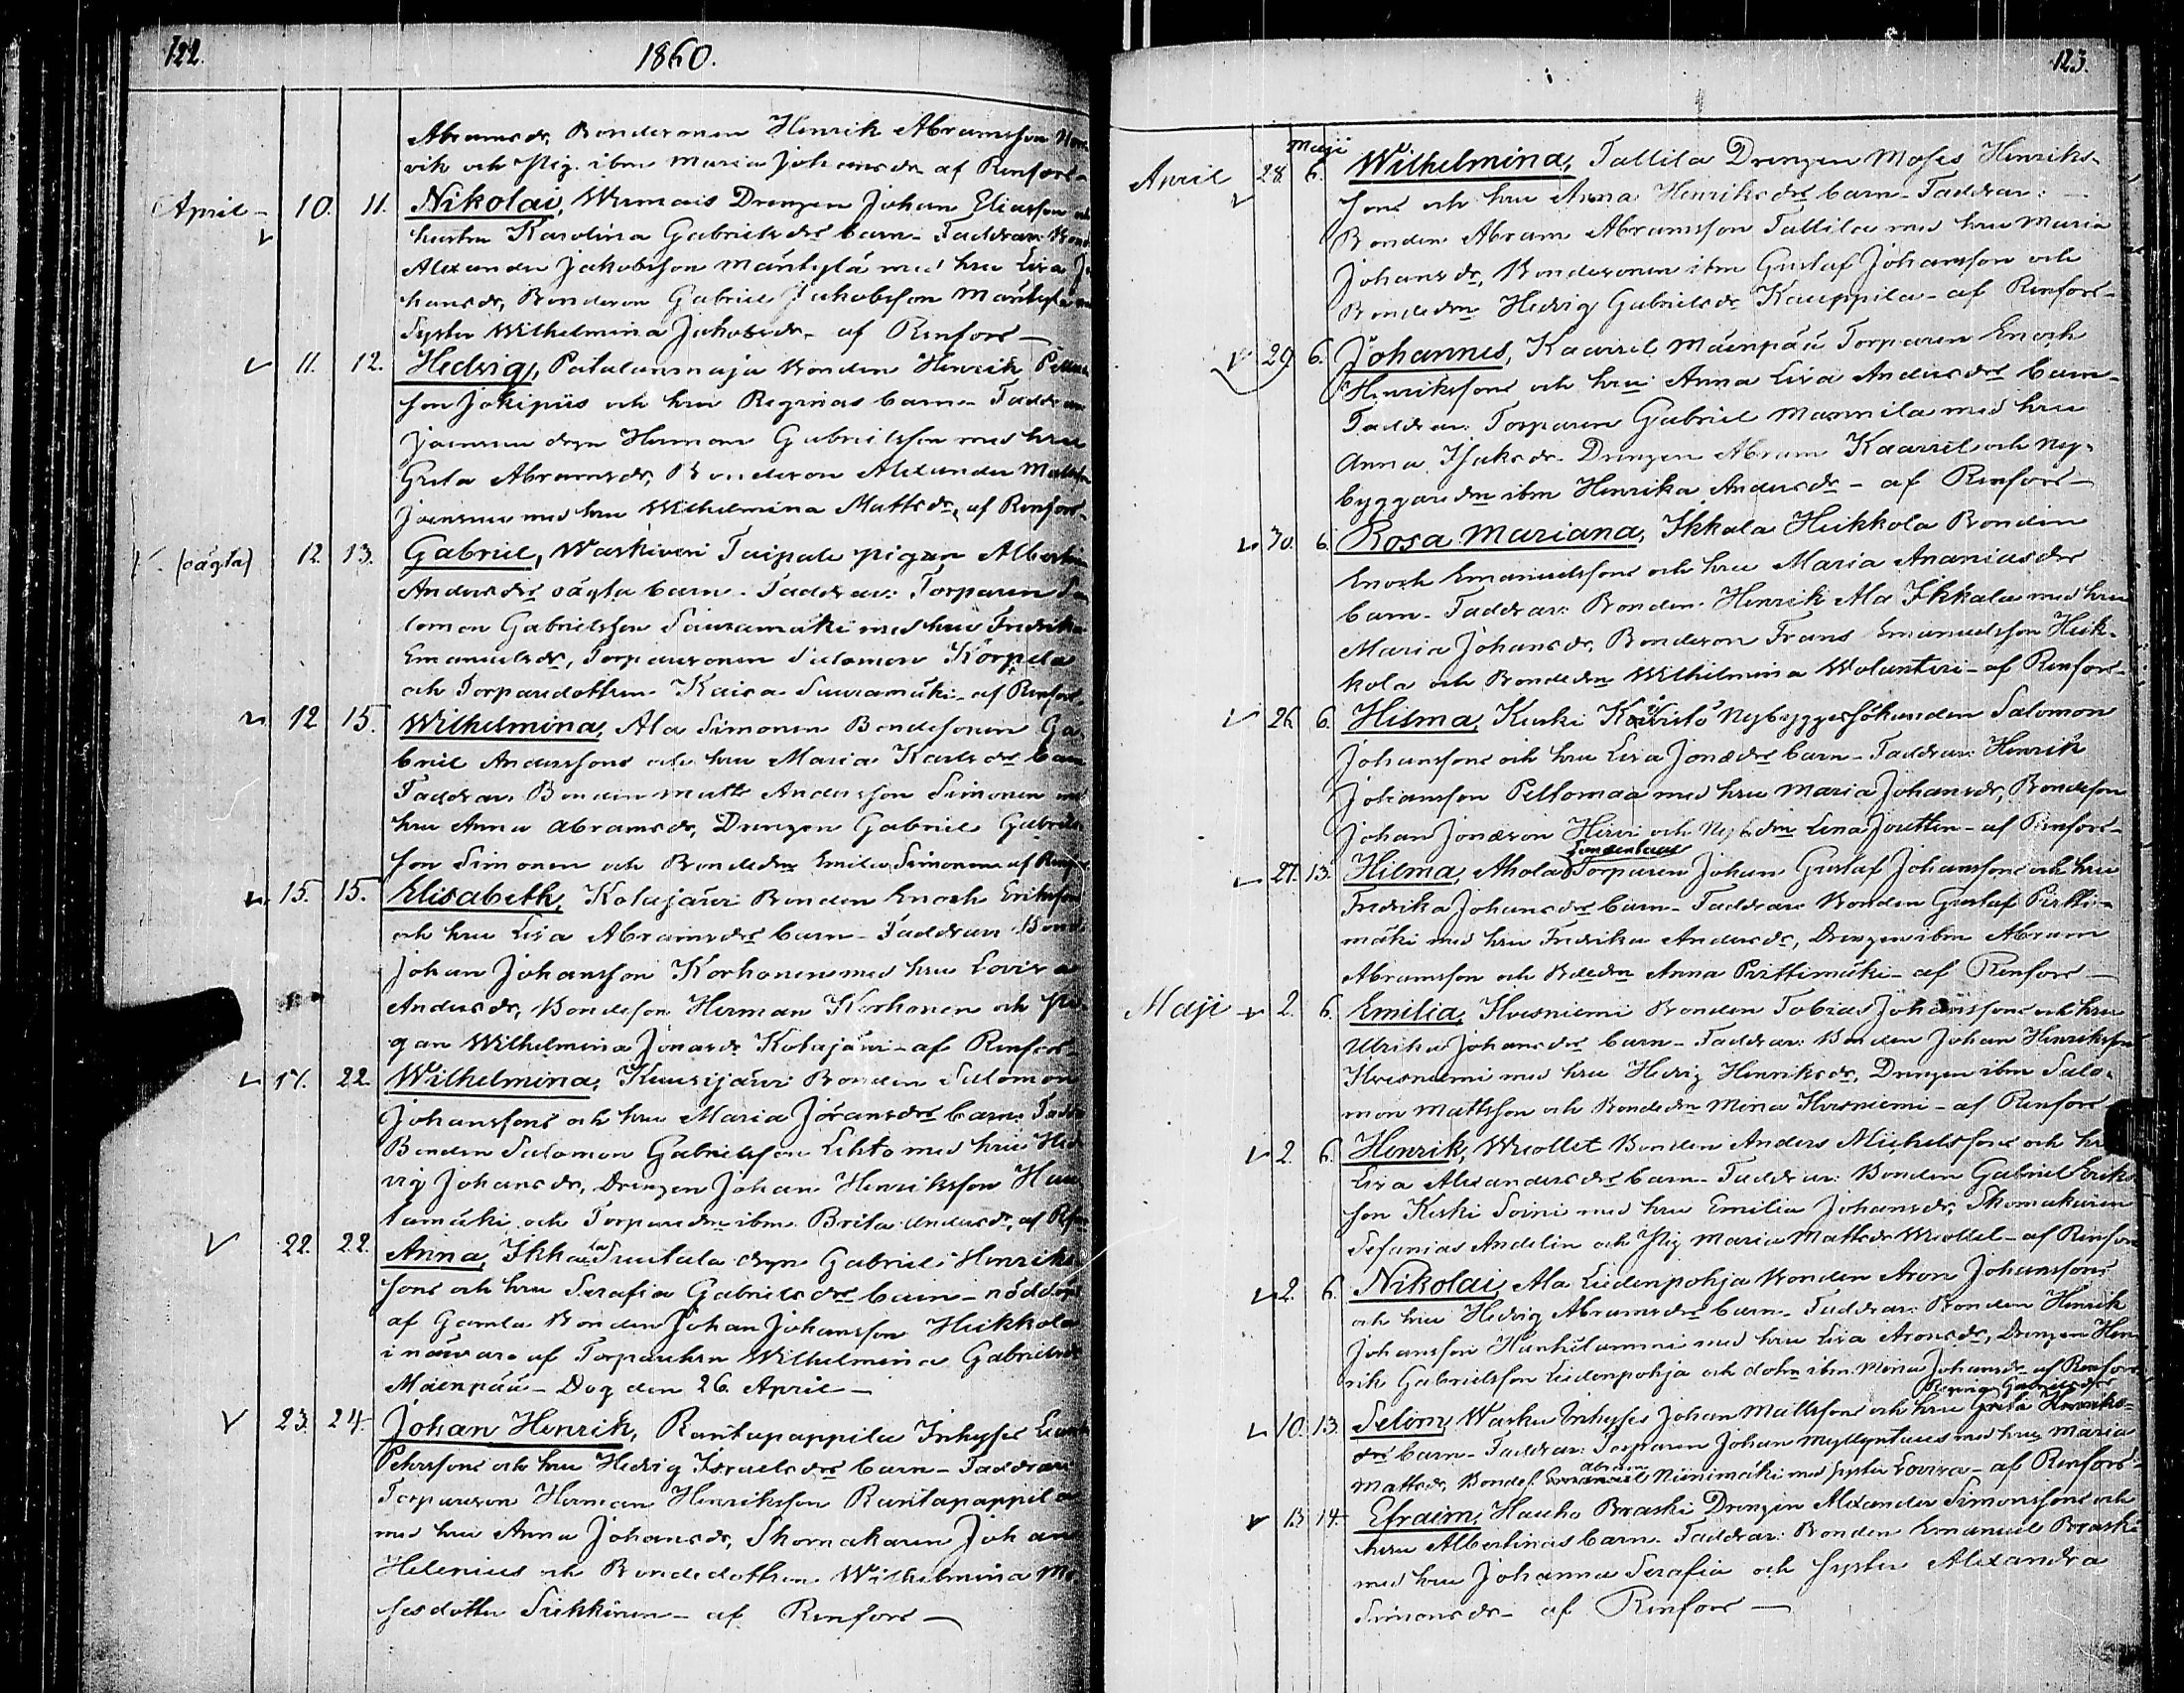 122.
1860.
Abramsdr, Bondesonen Henrik Abramsson
vik och Pig. ibm Maria Johansdr af Renfors
April 10. 11. Nikolai, Drengen Johan Eliasson
hustru Karolina Gabrielsdrs barn. Faddrar:
Alexander Jakobsson Mäntylä med hru Lisa
hansdr, Bondeson Gabriel Jakobsson Mäntylä
Syster Wilhelmina Jakobsdr af Renfors
11. 12. Hedvig, Bonden Henrik
son Jokipiis och hru Reginas barn. Faddrar
drgn Herman Gabrielsson med hru
Greta Abramsdr, Bondeson Alexander
med hru Wilhelmina Mattsdr, af Renfors
(oägta) 12. 13. Gabriel, Waskivori Taipale pigan
Andersdrs oägta barn. Faddrar: Torparen
lomon Gabrielsson Sauramäki med hru Fredrika
Emanuelsdr, Torparesonen Salomon Korpela
och Torparedottren Kaisa Sauramäki af Renfors
12 15. Wilhelmina, Ala Simonen Bondesonen Ga
briel Anderssons och hru Maria Karlsdrs barn
Faddrar: Bonden Matts Andersson Simonen
hru Anna Abramsdr, Drengen Gabriel
son Simonen och Bondedrn Emilia Simonen af
15. 15. Elisabeth, Kotajärvi Bonden Enoch Eriksson
och hru Lisa Abramsdrs barn. Faddrar:
Johan Johansson Korhonen med hru Lovisa
Andersdr, Bondeson Herman Korhonen och Pi
gan Wilhelmina Jonasdr Kotajärvi af Renfors
17. 22. Wilhelmina, Kuusijärvi Bonden Salomon
Johanssons och hru Maria Jöransdrs barn.
Bonden Salomon Gabrielsson Lehto med hru Hed
vig Johansdr, Drengen Johan Henriksson
lamäki och Torparedrn ibm Brita Andersdr, af
22. 22. Anna, Ikkala Drgn Gabriel Henriks
sons och hru Serafia Gabrielsdrs barn nöddöpt
af Gamla Bonden Johan Johansson Heikkola
i närvaro af Torparehrn Wilhelmina Gabrielsdr
Mäenpää. Dog den 26. April
23. 24. Johan Henrik, Rantapappila Inhyses
Pehrssons och hru Hedvig Israelsdrs barn. Faddrar
Torpareson Herman Henriksson Rantapappila
med hru Anna Johansdr, Skomakaren Johan
Helenius och Bondedottren Wilhelmina Mo
sesdotter af Renfors
123.
Maji
April 28. 6. Wilhelmina, Tallila Drengen Moses Henriks
sons och hru Anna Henriksdrs barn. Faddrar:
Bonden Abram Abramsson Tallila med hru Maria
Johansdr, Bondesonen ibm Gustaf Johansson och
Bondedrn Hedvig Gabrielsdr Kauppila af Renfors
29. 6. Johannes, Kaarel Mäenpää Torparen Enoch
Henrikssons och hru Anna Lisa Andersdrs barn
Faddrar: Torparen Gabriel Mannila med hru
Anna Isaksdr. Drengen Abram Kaarel och Ny
byggaredrn ibm Henrika Andersdr af Renfors
30. 6. Rosa Mariana, Ikkala Heikkola Bonden
Enoch Emanuelssons och hru Maria Ananiasdrs
barn. Faddrar: Bonden Henrik Ala Ikkala med hru
Maria Johansdr, Bondeson Frans Emanuelsson Heik
kola och Bondedrn Wilhelmina Wolanteri af Renfors
26. 6. Hilma, Keski Koivisto Nybyggessökanden Salomon
Johanssons och hru Lisa Jonædrs barn. Faddrar: Henrik
Johansson Peltomaa med hru Maria Johansdr, Bondeson
Johan Jonæson Hirvi och drn Lena af Renfors
27. 13. Hilma, Ahola Torparen Johan Gustaf Johanssons och hru
Fredrika Johansdrs barn. Faddrar: Bonden Gustaf Pirtti
mäki med hru Fredrika Andersdr, Drengen ibm Abram
Abramsson och Bdedrn Anna Pirttimäki af Renfors
Maji 2. 6. Emilia, Ilvesniemi Bonden Tobias Johanssons och hru
Ulrika Johansdrs barn. Faddrar: Bonden Johan Henriksson
Ilvesniemi med hru Hedvig Henriksdr, Drengen ibm Salo
mon Mattsson och Bondedrn Mina Ilvesniemi af Renfors
2. 6. Henrik, Wuollet Bonden Anders Michelssons och hru
Lisa Alexandersdrs barn. Faddrar: Bonden Gabriel Eriks
son Keski Soini med hru Emilia Johansdr, Skomakaren
Sefanias Andelin och Pig Maria Mattsdr Wuollet af Renfors
2. 6. Nikolai, Ala Liedenpohja Bonden Aron Johanssons
och hru Hedvig Abramsdrs barn. Faddrar: Bonden Henrik
Johansson Hankilammi med hru Lisa Aronsdr, Drengen Hen
rik Gabrielsson Liedenpohja och dotn ibm Maria Johansdr af Renfors
10. 13. Selim, Inhyses Johan Mattssons och hru Greta Henriks
drs barn. Faddrar: Torparen Johan Myllyntaus med hru Maria
Mattsdr, Bondes. Abram Niinimäki med syster Lovisa af Renfors
13 14. Efraim, Hauho Braski Drengen Alexander Simonssons och
hru Albertinas barn. Faddrar: Bonden Emanuel Braski
med hru Johanna Serafia och syster Alexandra
Simonsdr af Renfors